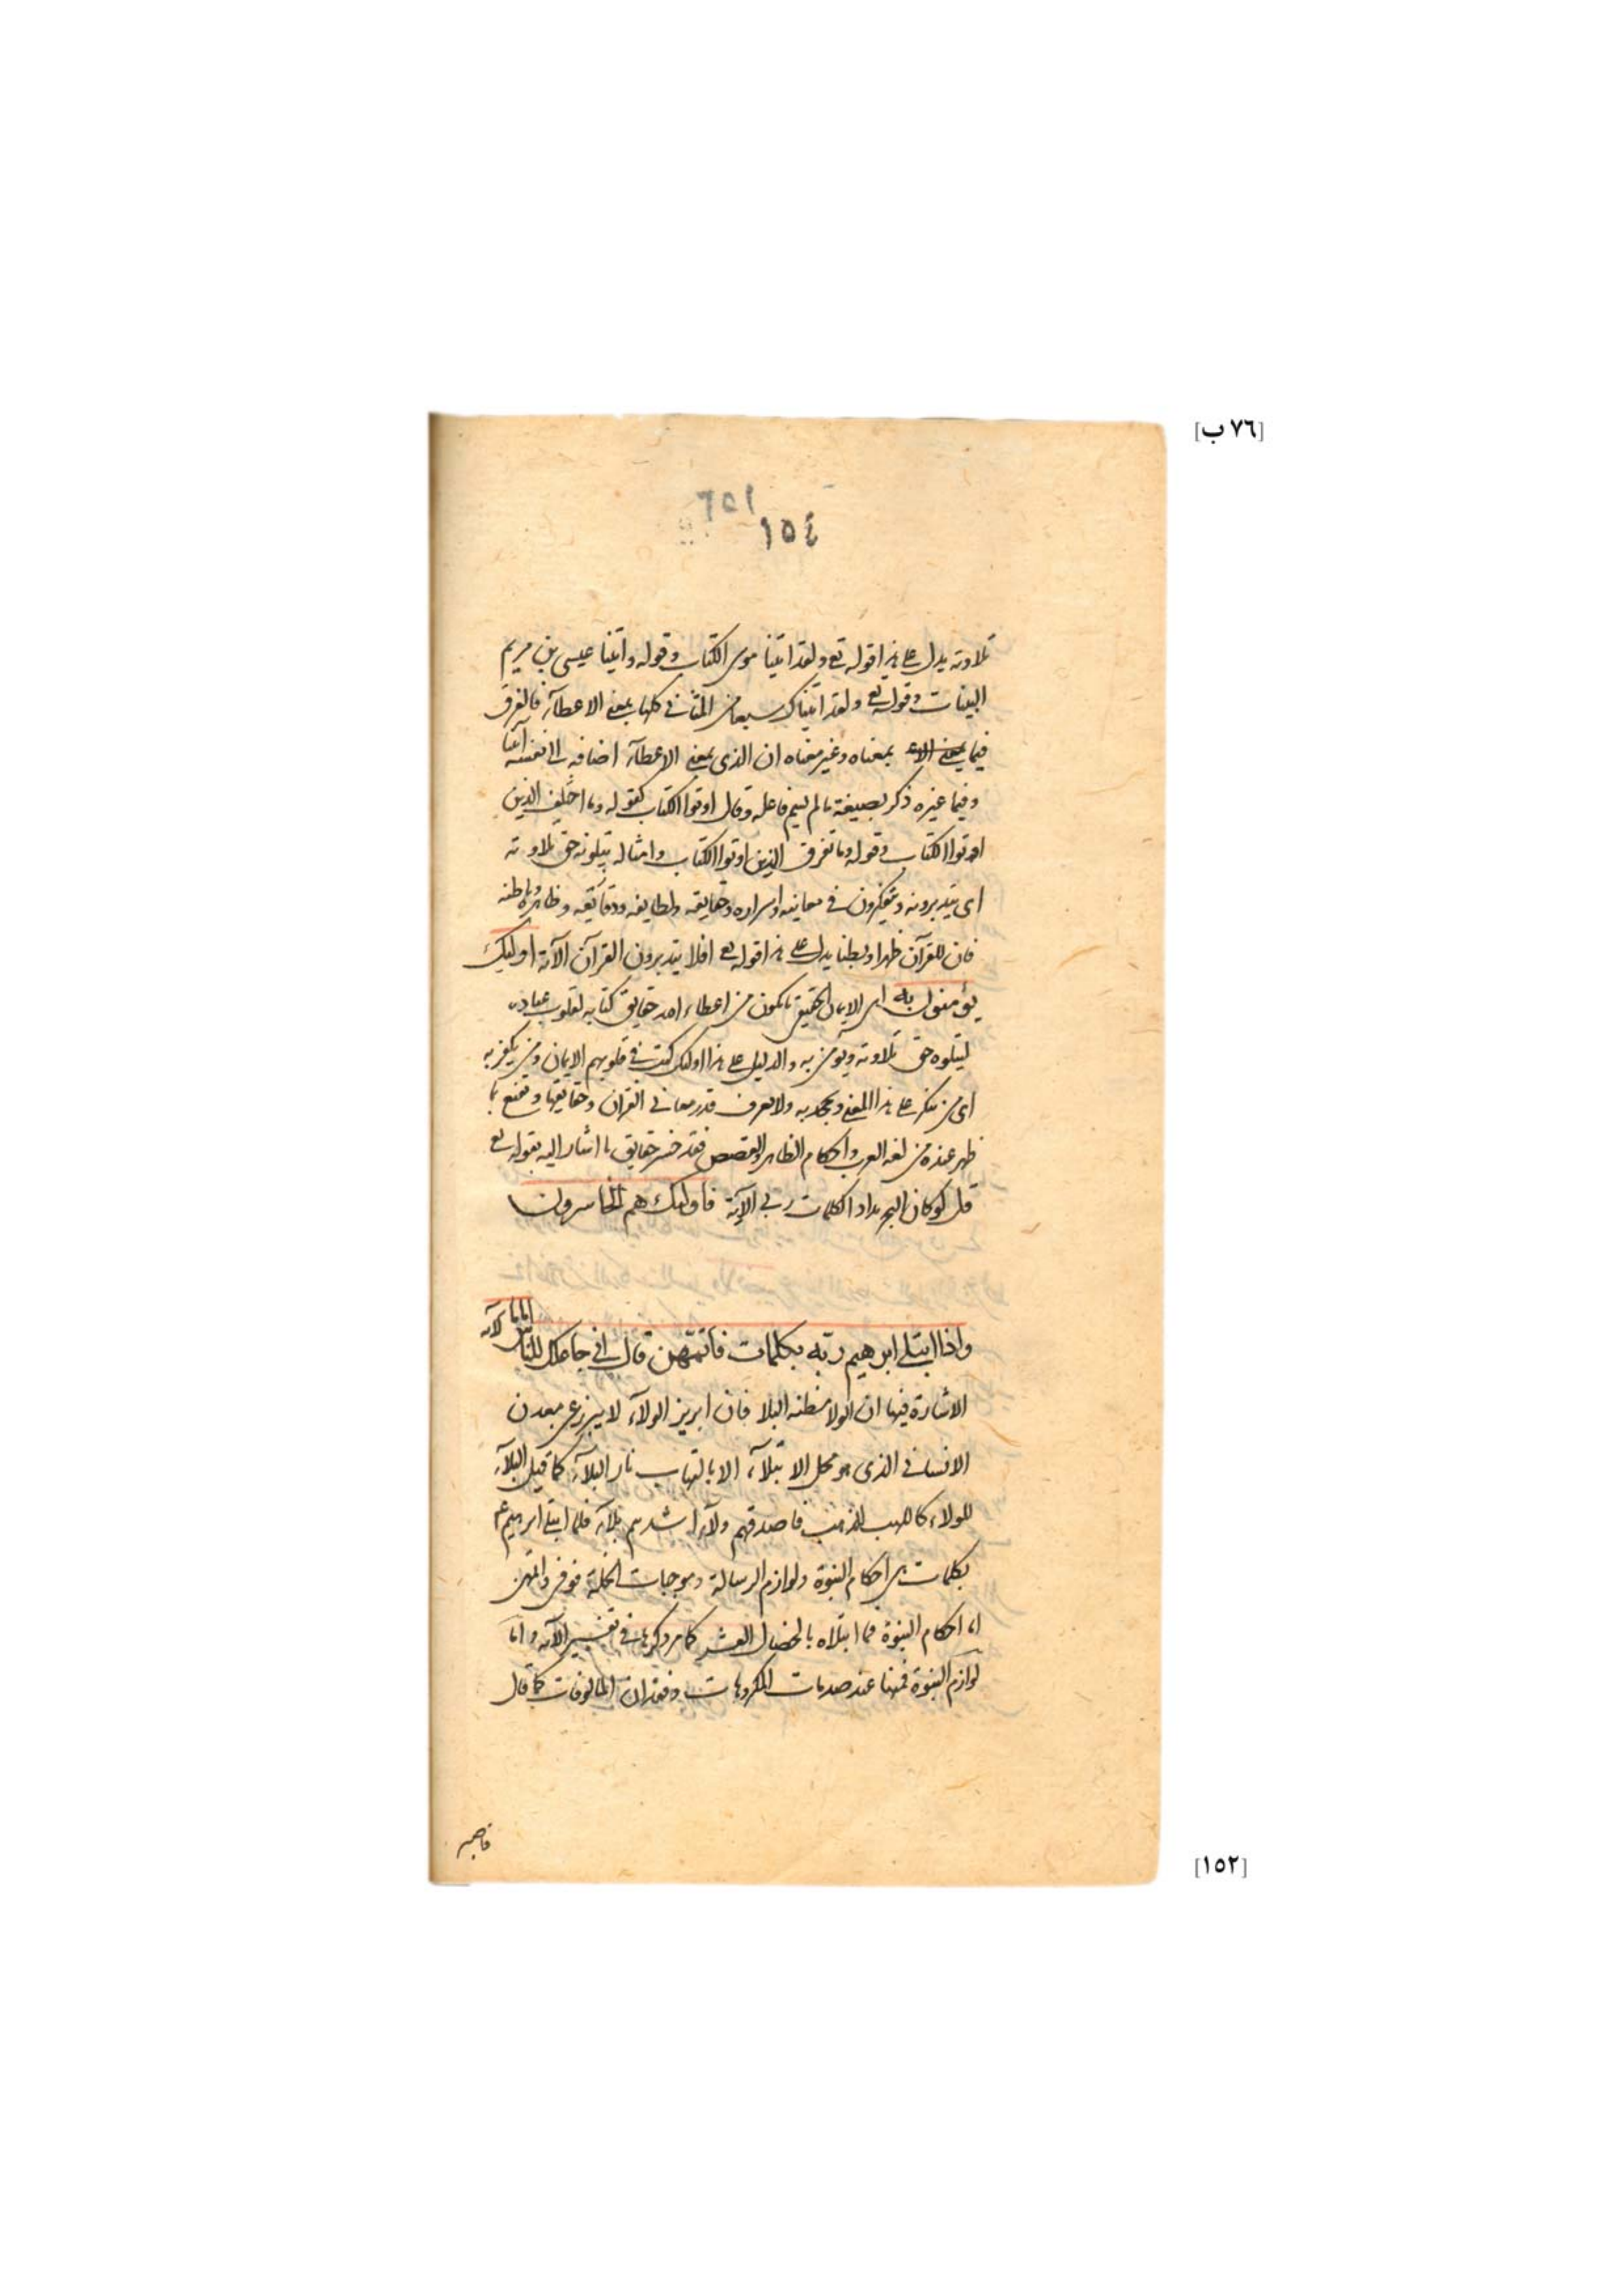 [٧٦ ب]
١٥٤
تلاوته يدل على هذا قوله تع ولقد اتينا موسى الكتاب وقوله واتينا عيسى بن مريم
البينات وقوله تع ولقد اتيناك سبعا من المثاني كلها بمعنى الاعطآء فالفرق
فيما بمعناه وغير معناه ان الذي بمعنى الاعطآء اضافه الى نفسه آتينا
وفيما غيره ذكر بصيغة ما لم يسم فاعله وقال اوتوا الكتاب كقوله وما اختلف الذين
اوتوا الكتاب وقوله وما تفرق الذين اوتوا الكتاب وامثاله يتلونه حق تلاوته
اى يتدبرونه ويتفكرون في معانيه واسراره وحقايقه ولطايفه ودقايقه وظاهره وباطنه
فان للقرآن ظهرا وبطنا يدل على هذا قوله تع افلا يتدبرون القرآن الآية اوليك
يؤمنون به اى الايمان الحقيقى ما يكون من اعطاء الله حقايق كتابه لقلوب عباده
ليتلوه حق تلاوته ويومن به والدليل على هذا اولئك كتب في قلوبهم الايمان ومن يكفر به
اى من ينكر على هذا المعنى ويجحد به ولا يعرف قدر معاني القرآن وحقايقها ويقنع بما
ظهر عنده من لغه العرب واحكام الظاهر والقصص فقد خسر حقايق ما اشار اليه بقوله تع
قل لو كان البحر مدادا لكلمات ربي الآية فاوليك هم الخاسرون
واذا ابتلى ابرهيم ربه بكلمات فأتمهن قال اني جاعلك للناس اماما الآيه
الاشارة فيها ان الولا مظنه البلا فان ابريز الولآء لا يبرز عن معدن
الانساني الذى هو محل الابتلآء الا بالتهاب نار البلآء كما قيل البلآء
للولاء كاللهب للذهب فاصدقهم ولآء اشدهم بلآء فلما ابتلى ابرهيم ع
بكلمات هى احكام النبوة ولوازم الرسالة وموجبات الخلة فوفى واتمهن
اما احكام النبوة فما ابتلاه بالخصال العشر كما مر ذكرها في تفسير الآيه واما
لوازم النبوة فمنها عند صدمات المكروهات وفقدان المالوفات كما قال
[١٥٢]